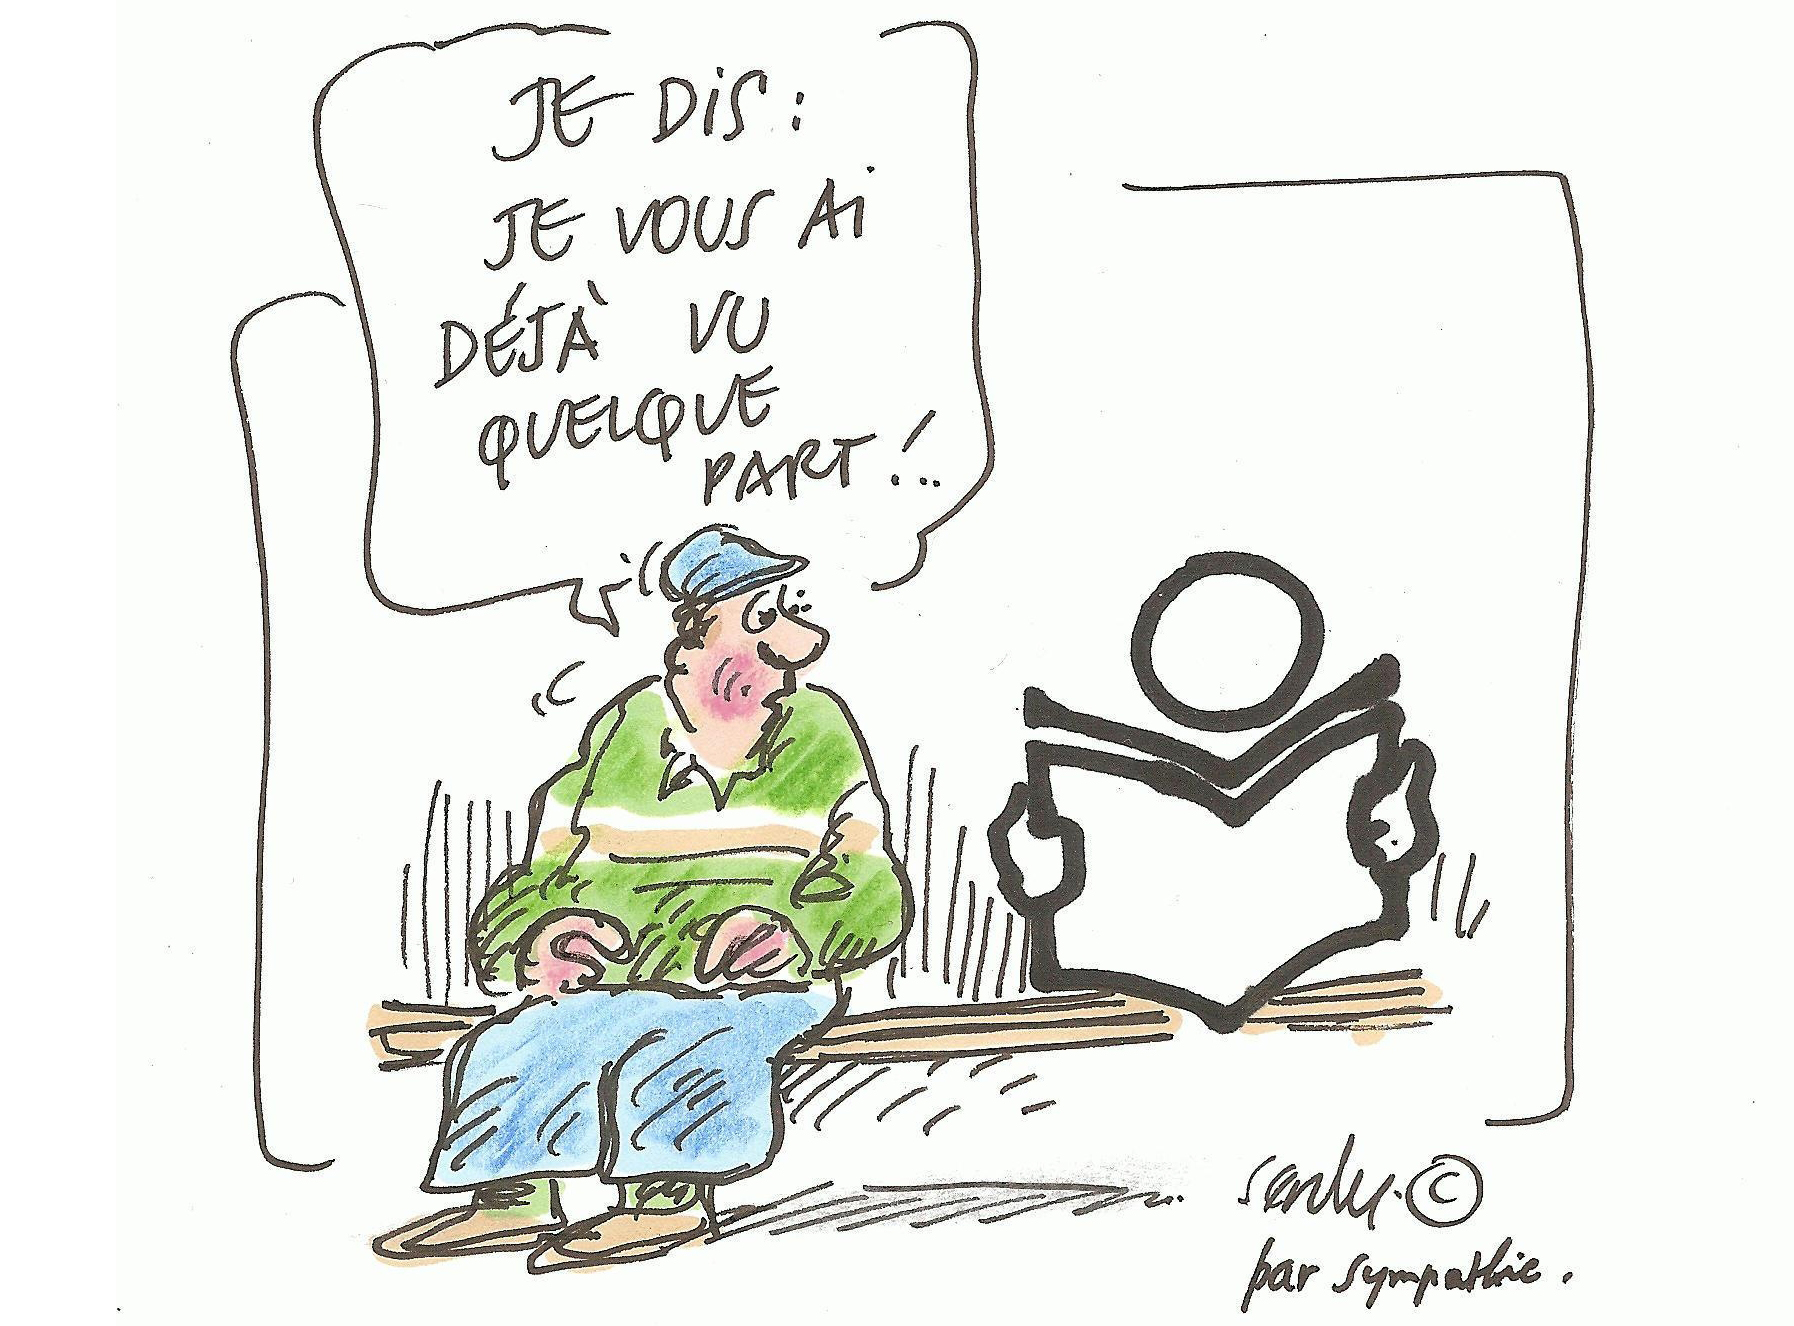 JE DiS :
JE VOUS Ai
DÉJÀ VU
QUELQUE
PART !..
©
par sympathie.